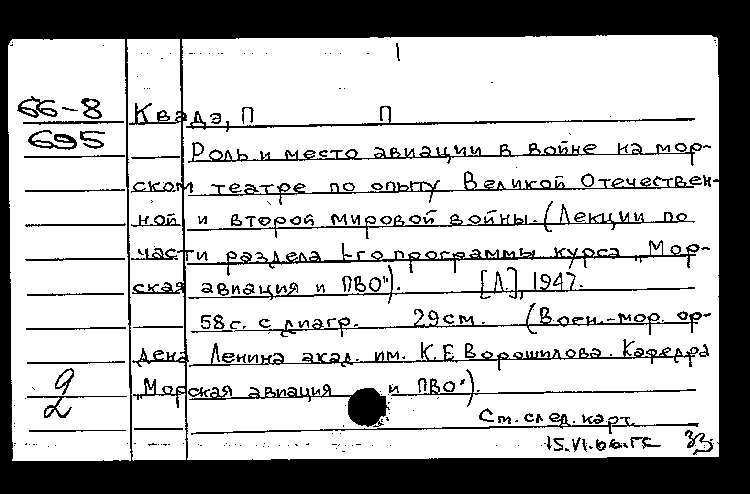 66-8 Квадэ, П П
695
Роль и место авиации в войне на мор-
ском театре по опыту Великой Отечествен-
ной и второй мировой войны. (Лекции по
части раздела 1-го программы курса „Мор-
ская авиация и ПВО"). [Л.], 1947.
58 с. с диагр. 29 см. (Воен.-мор. ор-
дена Ленина акад. им. К. Е Ворошилова. Кафедра
„Морская авиация и ПВО").
2
См. след. карт.
15.VI.66.ГС